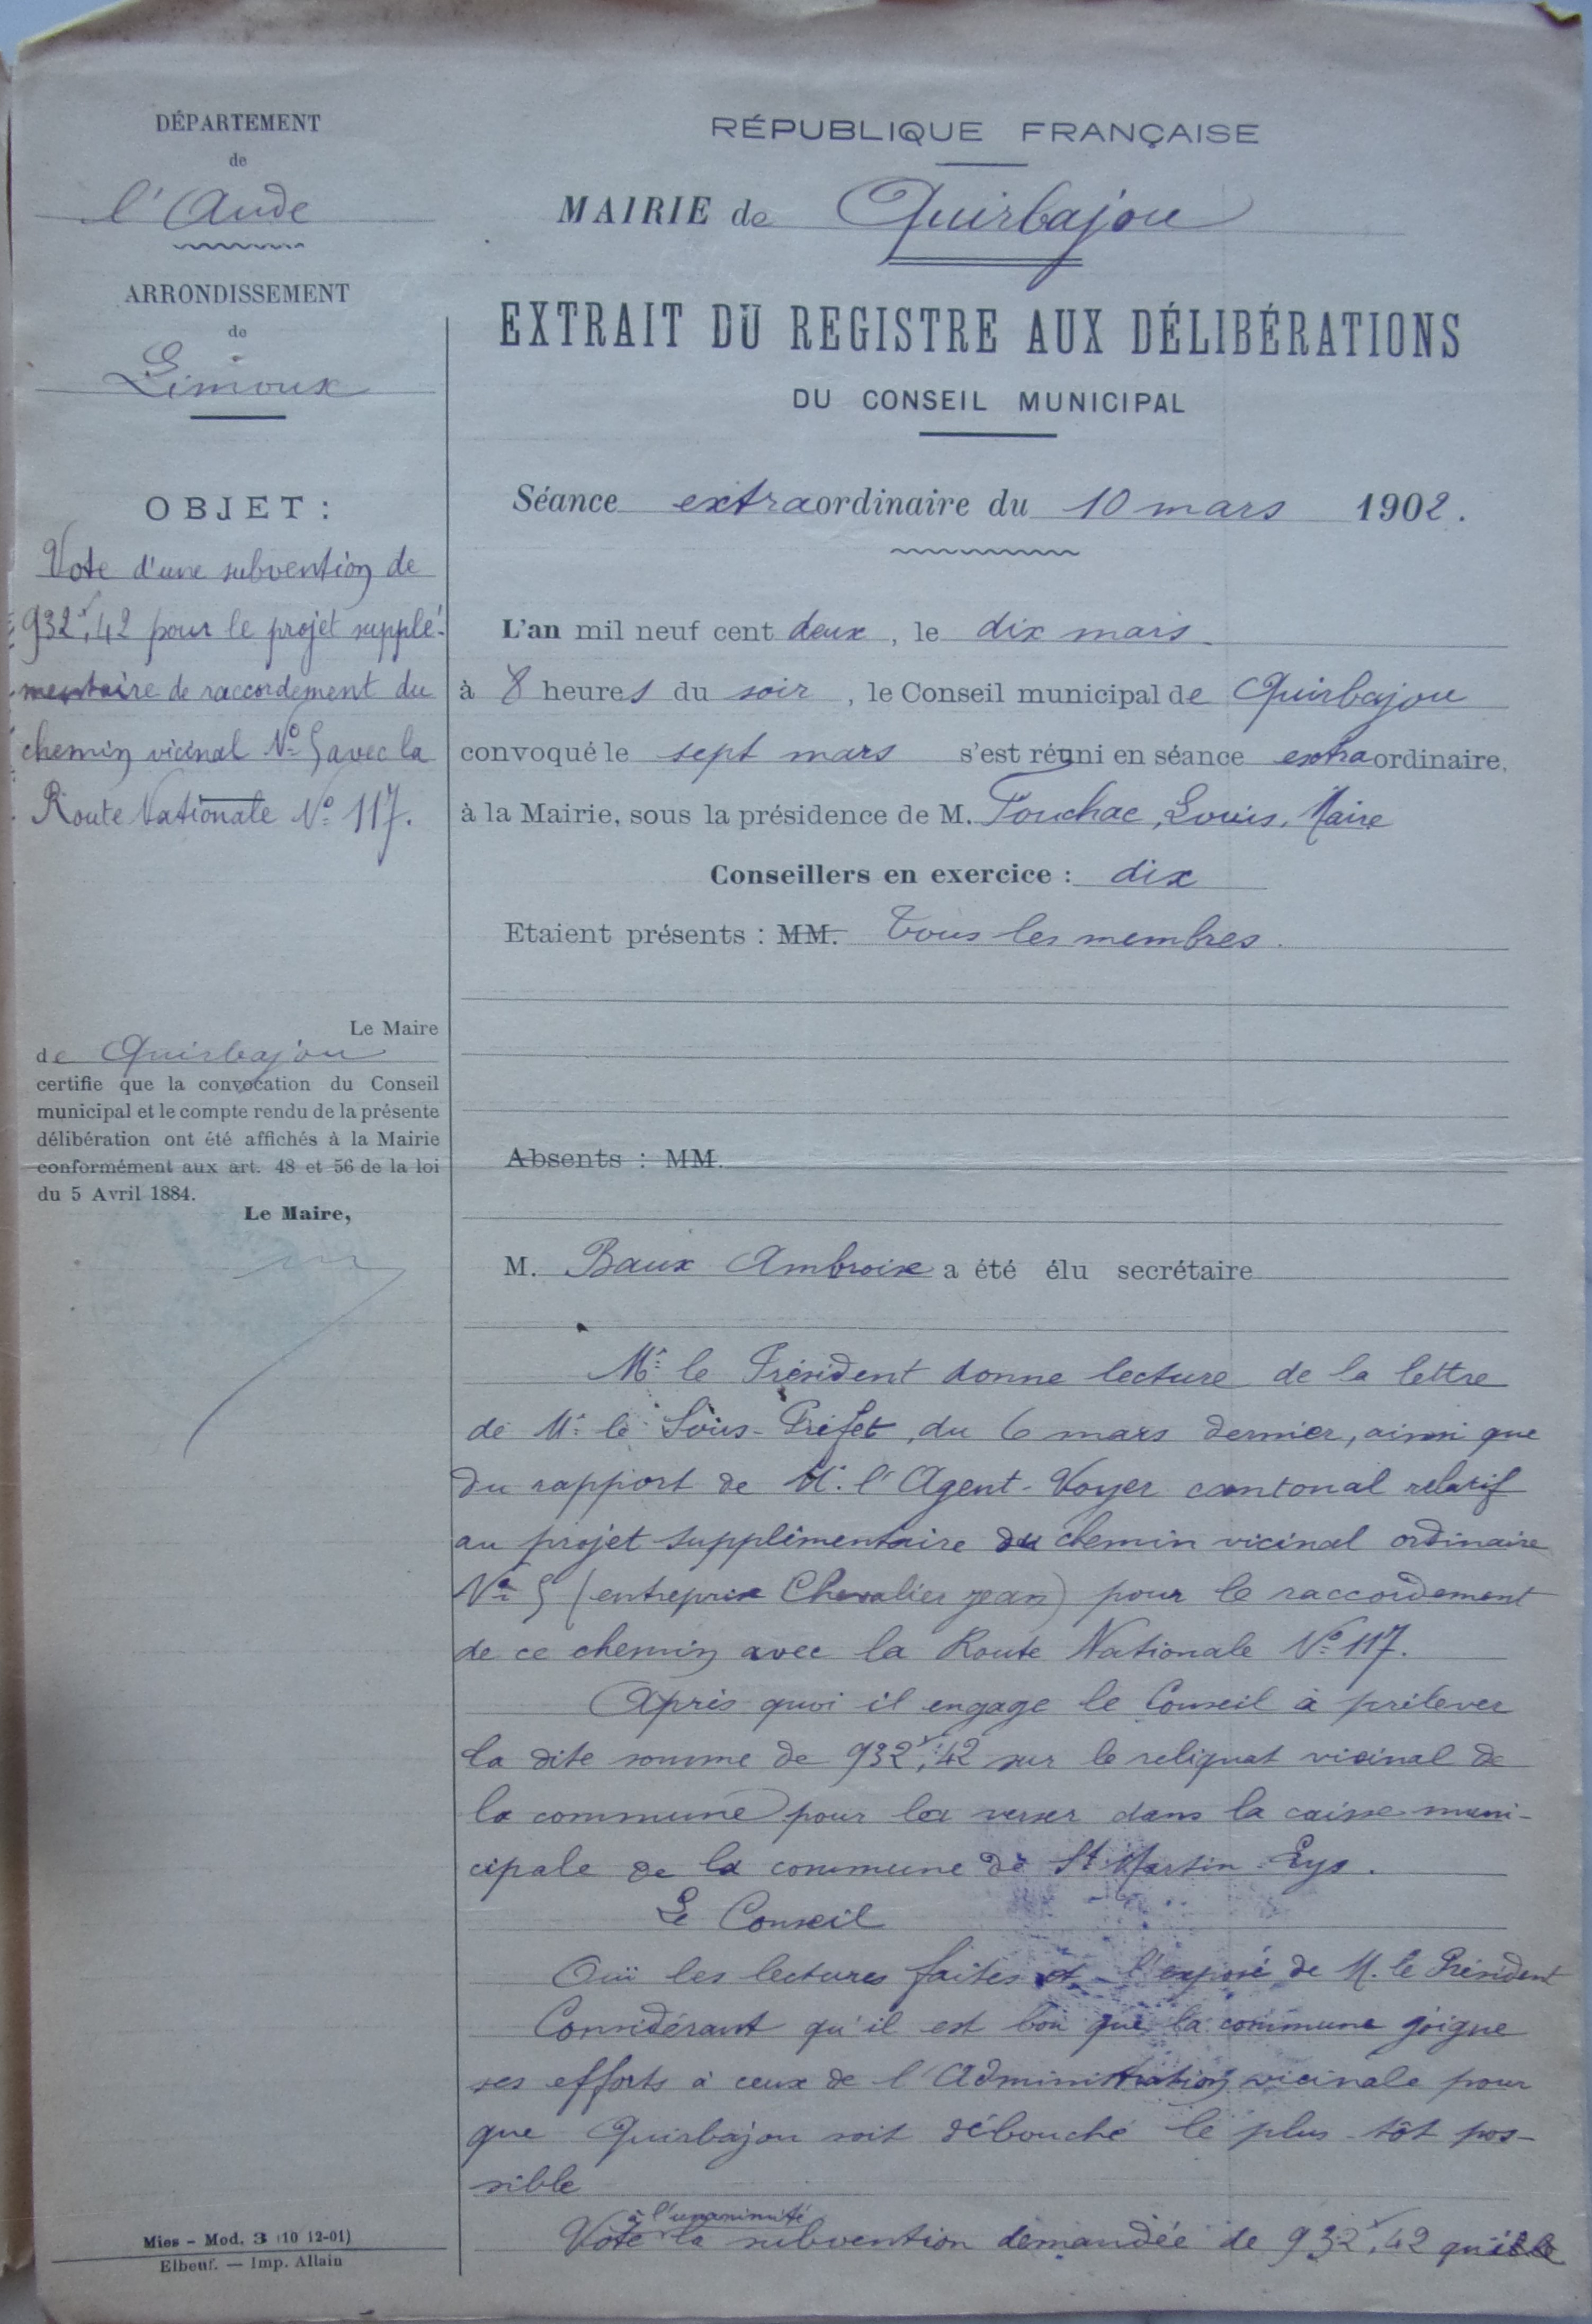 DÉPARTEMENT
de
l'Aude
ARRONDISSEMENT
de
Limoux
OBJET :
Vote d'une subvention de
932f,42 pour le projet supplé-
mentaire de raccordement du
chemin vicinal No 5 avec la
Route Nationale No 117.
Le Maire
de Quirbajou
certifie que la convocation du Conseil
municipal et le compte rendu de la présente
délibération ont été affichés à la Mairie
conformément aux art. 48 et 56 de la loi
du 5 Avril 1884.
Le Maire,
Mies - Mod. 3 (10 12-01)
Elbeuf. — Imp. Allain
RÉPUBLIQUE FRANÇAISE
MAIRIE de Quirbajou
EXTRAIT DU REGISTRE AUX DÉLIBÉRATIONS
DU CONSEIL MUNICIPAL
Séance extraordinaire du 10 mars 1902.
L'an mil neuf cent deux, le dix mars
à 8 heures du soir, le Conseil municipal de Quirbajou
convoqué le sept mars s'est réuni en séance extraordinaire,
à la Mairie, sous la présidence de M. Pouchac, Louis, Maire
Conseillers en exercice : dix
Etaient présents : MM. Tous les membres.
Absents : MM.
M. Baux Ambroise a été élu secrétaire
Mr le Président donne lecture de la lettre
de Mr le Sous-Préfet, du 6 mars dernier, ainsi que
du rapport de M. l'Agent-Voyer cantonal relatif
au projet supplémentaire du chemin vicinal ordinaire
No 5 (entreprise Chevalier jean) pour le raccordement
de ce chemin avec la Route Nationale No 117.
Après quoi il engage le Conseil à prélever
la dite somme de 932f,42 sur le reliquat vicinal de
la commune pour la verser dans la caisse muni-
cipale de la commune de St Martin-Lys.
Le Conseil
Ouï les lectures faites et l'exposé de M. le Président
Considérant qu'il est bon que la commune joigne
ses efforts à ceux de l'Administration vicinale pour
que Quirbajou soit débouché le plus tôt pos-
sible
à l'unanimité
Vote la subvention demandée de 932f,42 qu'elle